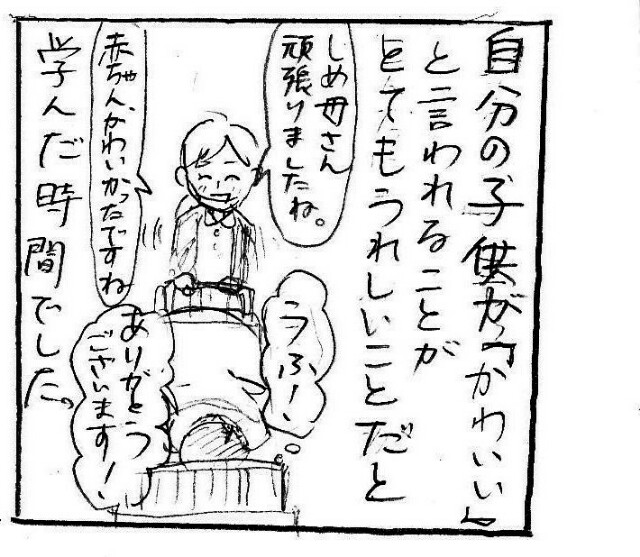 自分の子供が「かわいい」
と言われることが
とてもうれしいことだと
しめ母さん
頑張りましたね。
赤ちゃん、かわいかったですね
うふ！
ありがとう
ございます！
学んだ時間でした。